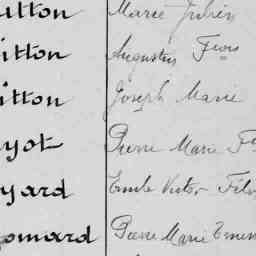 utton Marie Julien
itton Augustin Fcois
itton Joseph Marie
yot Pierre Marie
yard Emile Victor
omard Pierre Marie